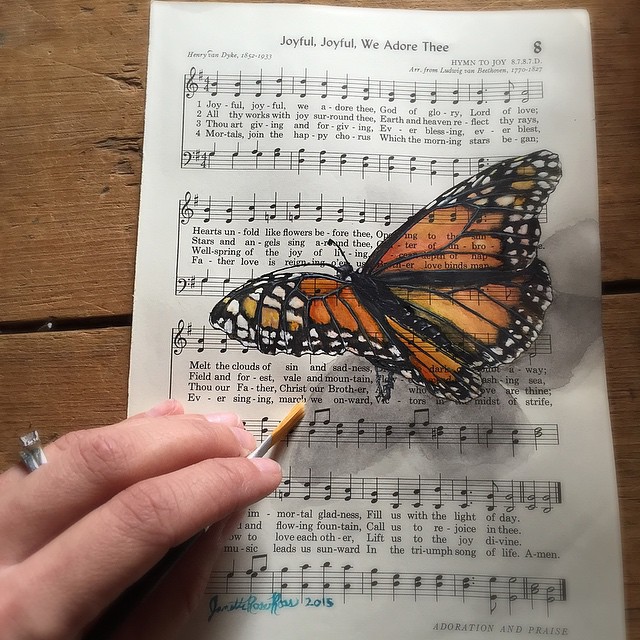 Joyful, Joyful, We Adore Thee
8
Henry van Dyke, 1852-1933
HYMN TO JOY 8.7.8.7.D.
Arr. from Ludwig van Beethoven, 1770-1827
1 Joy - ful, joy - ful, we a - dore thee, God of glo - ry, Lord of love;
2 All thy works with joy sur - round thee, Earth and heaven re - flect thy rays,
3 Thou art giv - ing and for - giv - ing, Ev - er bless - ing, ev - er blest,
4 Mor - tals, join the hap - py cho - rus Which the morn - ing stars be - gan;
Hearts un - fold like flowers be - fore thee, to the
Stars and an - gels sing a - round thee, ter of un - bro
Well - spring of the joy of liv - ing, depth of hap
Fa - ther love is reign - ing o'er us, er love binds man
Melt the clouds of sin and sad - ness, dark a - way;
Field and for - est, vale and moun - tain, ash - ing sea,
Thou our Fa - ther, Christ our Broth - er, who love are thine;
Ev - er sing - ing, march we on - ward, tors in midst of strife,
im - mor - tal glad - ness, Fill us with the light of day.
and flow - ing foun - tain, Call us to re - joice in thee.
ow to love each oth - er, Lift us to the joy di - vine.
mu - sic leads us sun - ward In the tri - umph song of life. A - men.
2015
ADORATION AND PRAISE